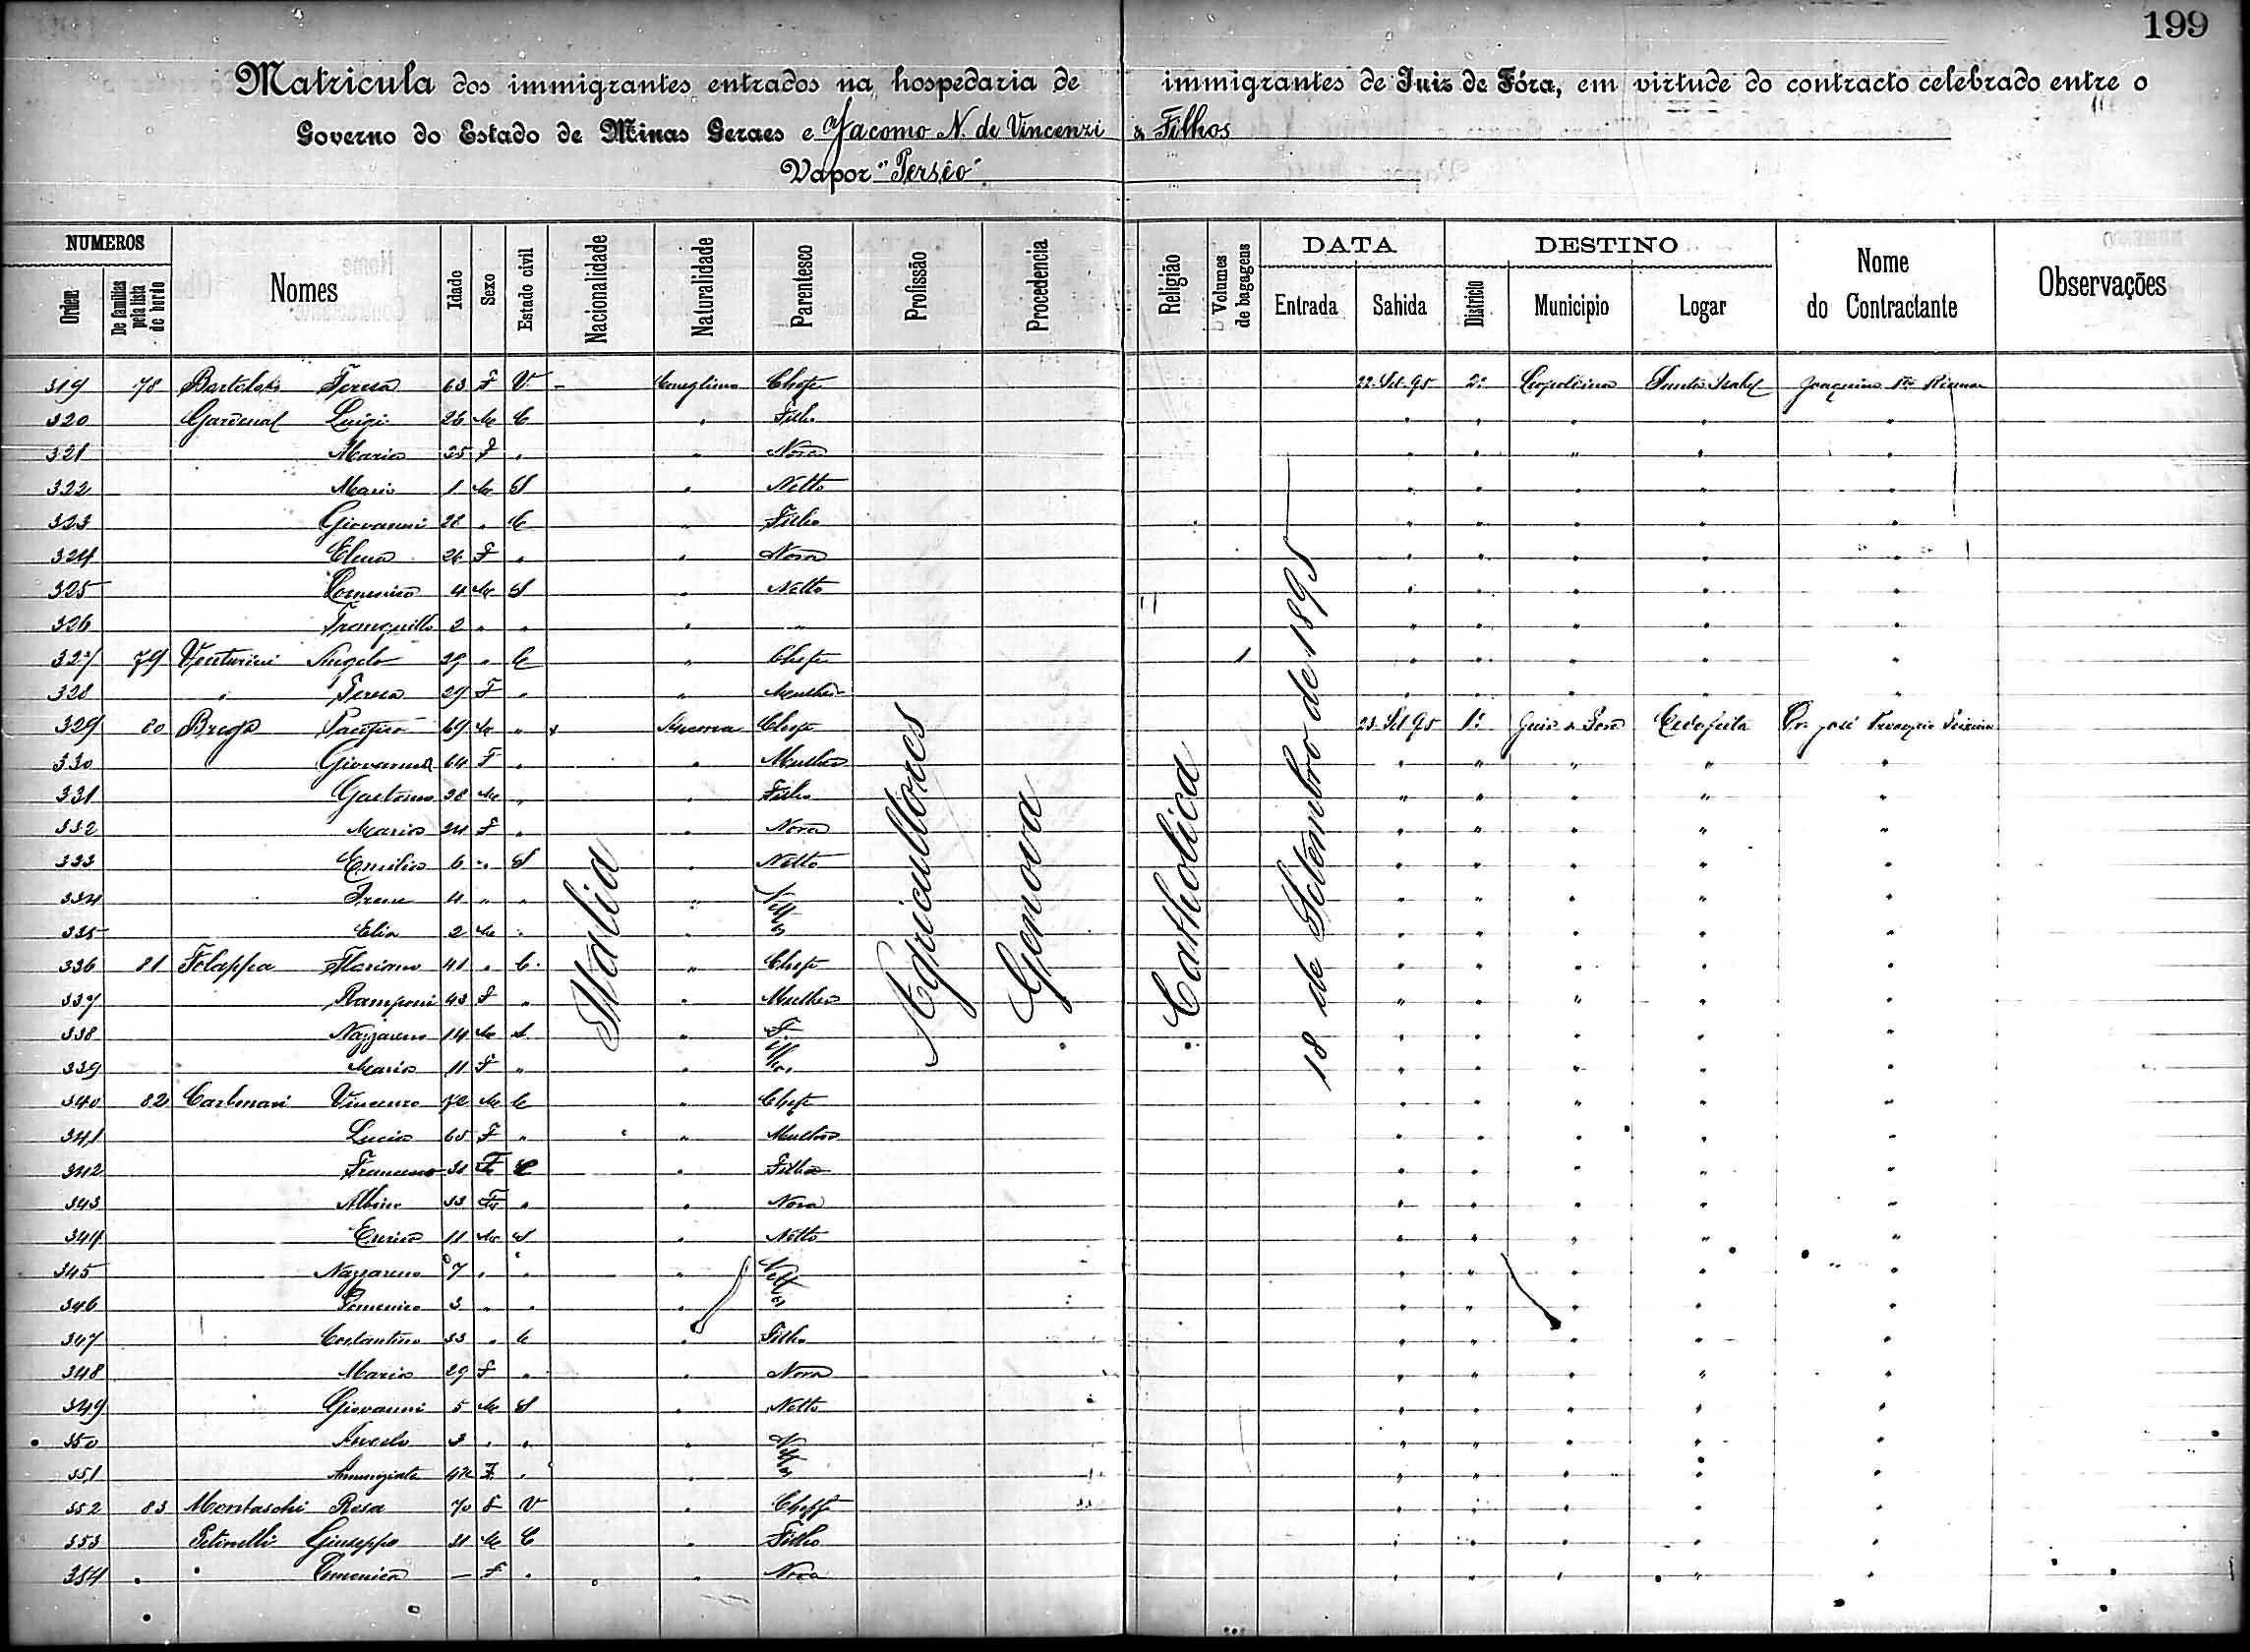 199
Matricula dos immigrantes entrados na hospedaria de immigrantes de Juiz de Fóra, em virtude do contracto celebrado entre o
Governo do Estado de Minas Geraes e Jacomo N. de Vincenzi & Filhos
Vapor "Perséo"
NUMEROS
Ordem
De familias pela lista de bordo
Nomes
Idade
Sexo
Estado civil
Nacionalidade
Naturalidade
Parentesco
Profissão
Procedencia
Religião
Volumes de bagagens
DATA
Entrada
Sahida
DESTINO
Districto
Municipio
Logar
Nome do Contractante
Observações
Italia
Agricultores
Genova
Catholica
18 de Setembro de 1895
319 78 Teresa 63 F V. - Chefe 22 Set. 95 2º Leopoldina Santa Isabel Joaquim
320 Gardenal Luigi 26 M C " Filho " " " " "
321 Maria 25 F " " Nora " " " " "
322 Mario 1 M S " Netto " " " " "
323 Giovanni 28 " C " Filho " " " " "
324 Elena 26 F " " Nora " " " " "
325 4 M S " Netto " " " " "
326 Tranquillo 2 " " " " " " " " "
327 79 Venturini Angelo 29 " C " Chefe 1 " " " " "
328 " Teresa 29 F " " Mulher " " " " "
329 80 Pacifico 69 M " Ancona Chefe 23 Set 95 1º Juiz de Fora Cedofeita Dr. José
330 Giovanna 64 F " " Mulher " " " " "
331 Gaetano 28 M " " Filho " " " " "
332 Maria 24 F " " Nora " " " " "
333 Emilia 6 " S " Netto " " " " "
334 Irene 4 " " " Netto " " " " "
335 Elia 2 M " " " " " " "
336 81 Floriano 41 " C. " Chefe " " " " "
337 Ramponi 43 F " " Mulher " " " " "
338 Nazzareno 14 M S " " " " " "
339 Maria 11 F " " Filhos " " " " "
340 82 Vincenzo 72 M C " Chefe " " " " "
341 Lucia 65 F " " Mulher " " " " "
342 Francesco C " Filho " " " " "
343 Albino 33 " " Nora " " " " "
344 Enrico 11 M S " Netto " " " " "
345 Nazzareno 7 " " " Netto " " " " "
346 Domenico 3 " " " " " " " "
347 Costantino 33 " C " Filho " " " " "
348 Maria 29 F " " Nora " " " " "
349 Giovanni 5 M S " Netto " " " " "
350 3 " " " Netto " " " " "
351 Annunziata F. " " " " " " "
352 83 Rosa 70 F V " Cheffe " " " " "
353 Petinelli Giuseppe 31 M C " Filho " " " " "
354 " Domenica — F " " Nora " " " " "